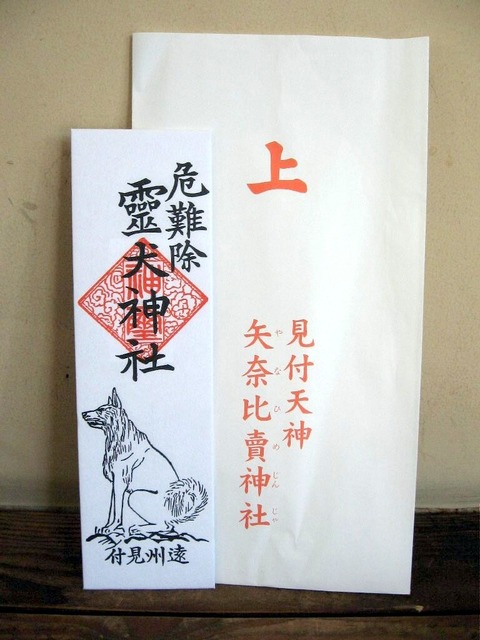 危難除
靈犬神社
遠州見付
上
見付天神
矢奈比賣神社
やなひめじんじゃ